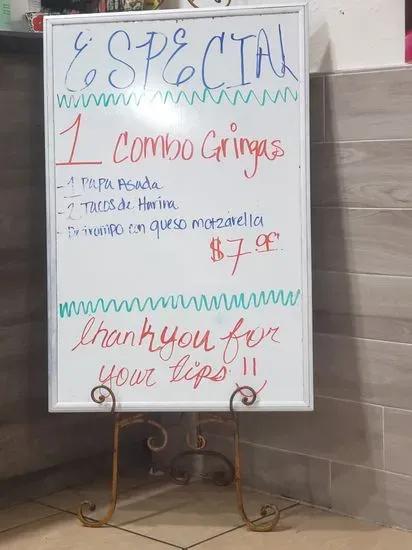 ESPECIAL
1 Combo Gringas
- 1 PAPA ASADA
- 2 Tacos de Harina
- De trompo con queso motzarella
$7.95
thank you for
your tips !!